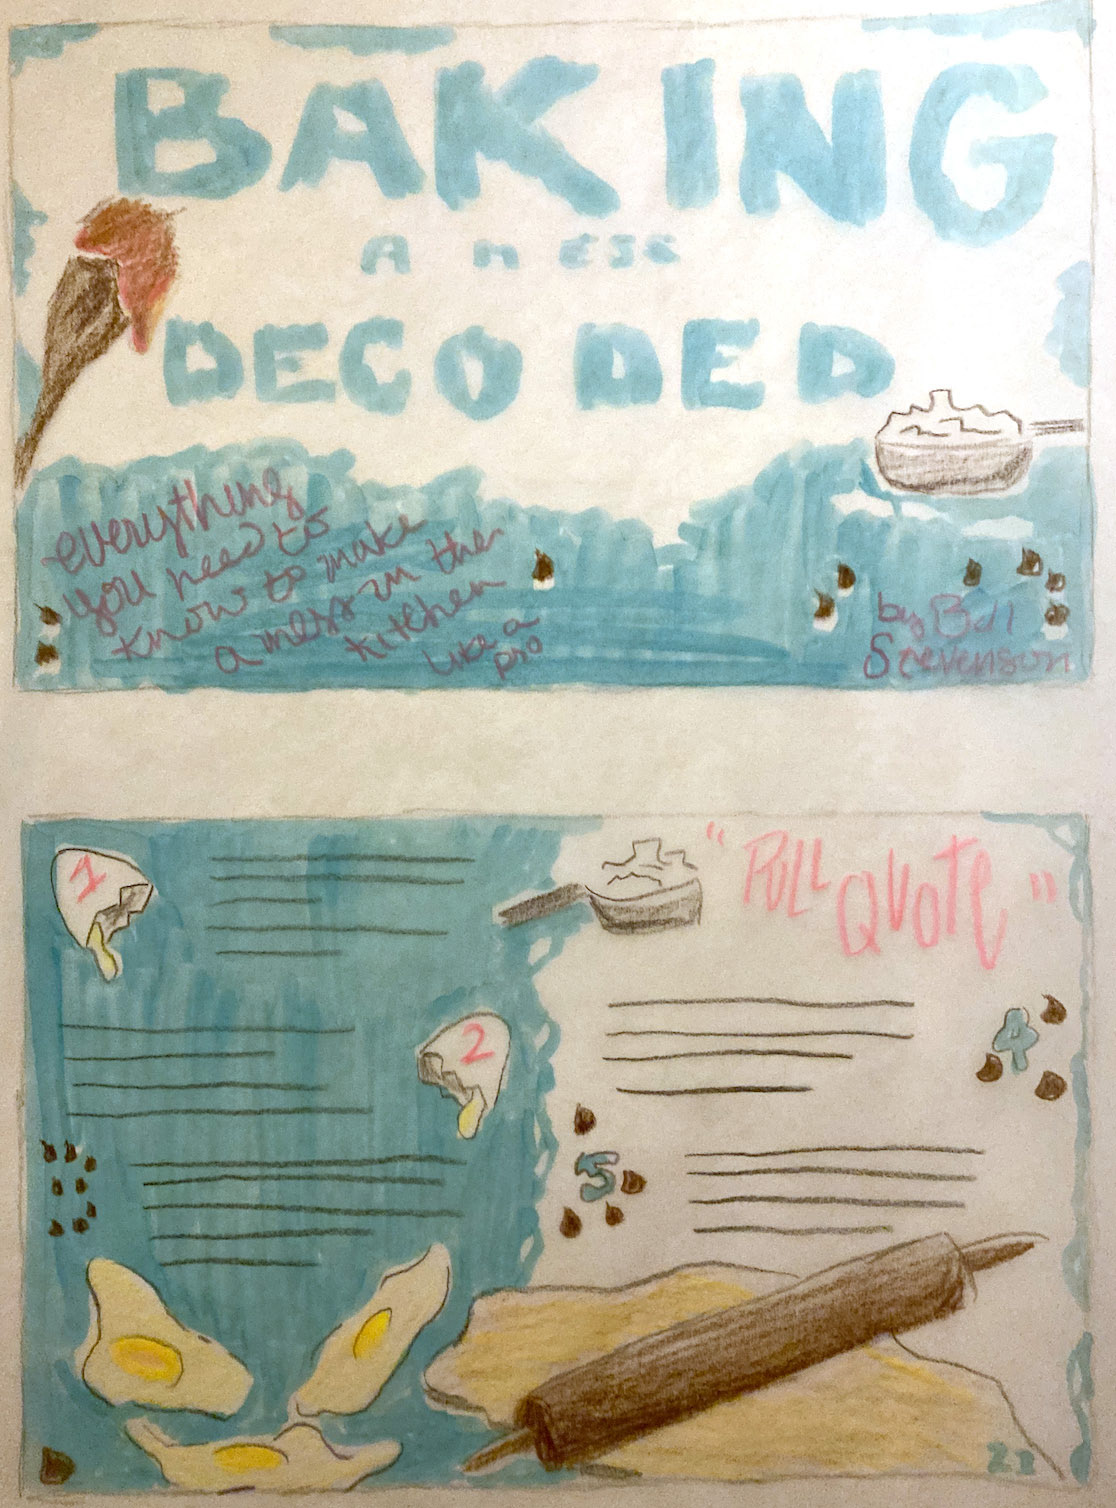 BAKING
A MESS
DECODED
everything
you need to
know to make
a mess in the
kitchen
like a
pro
by Bill
Stevenson
1
"PULL QUOTE"
2
4
3
5